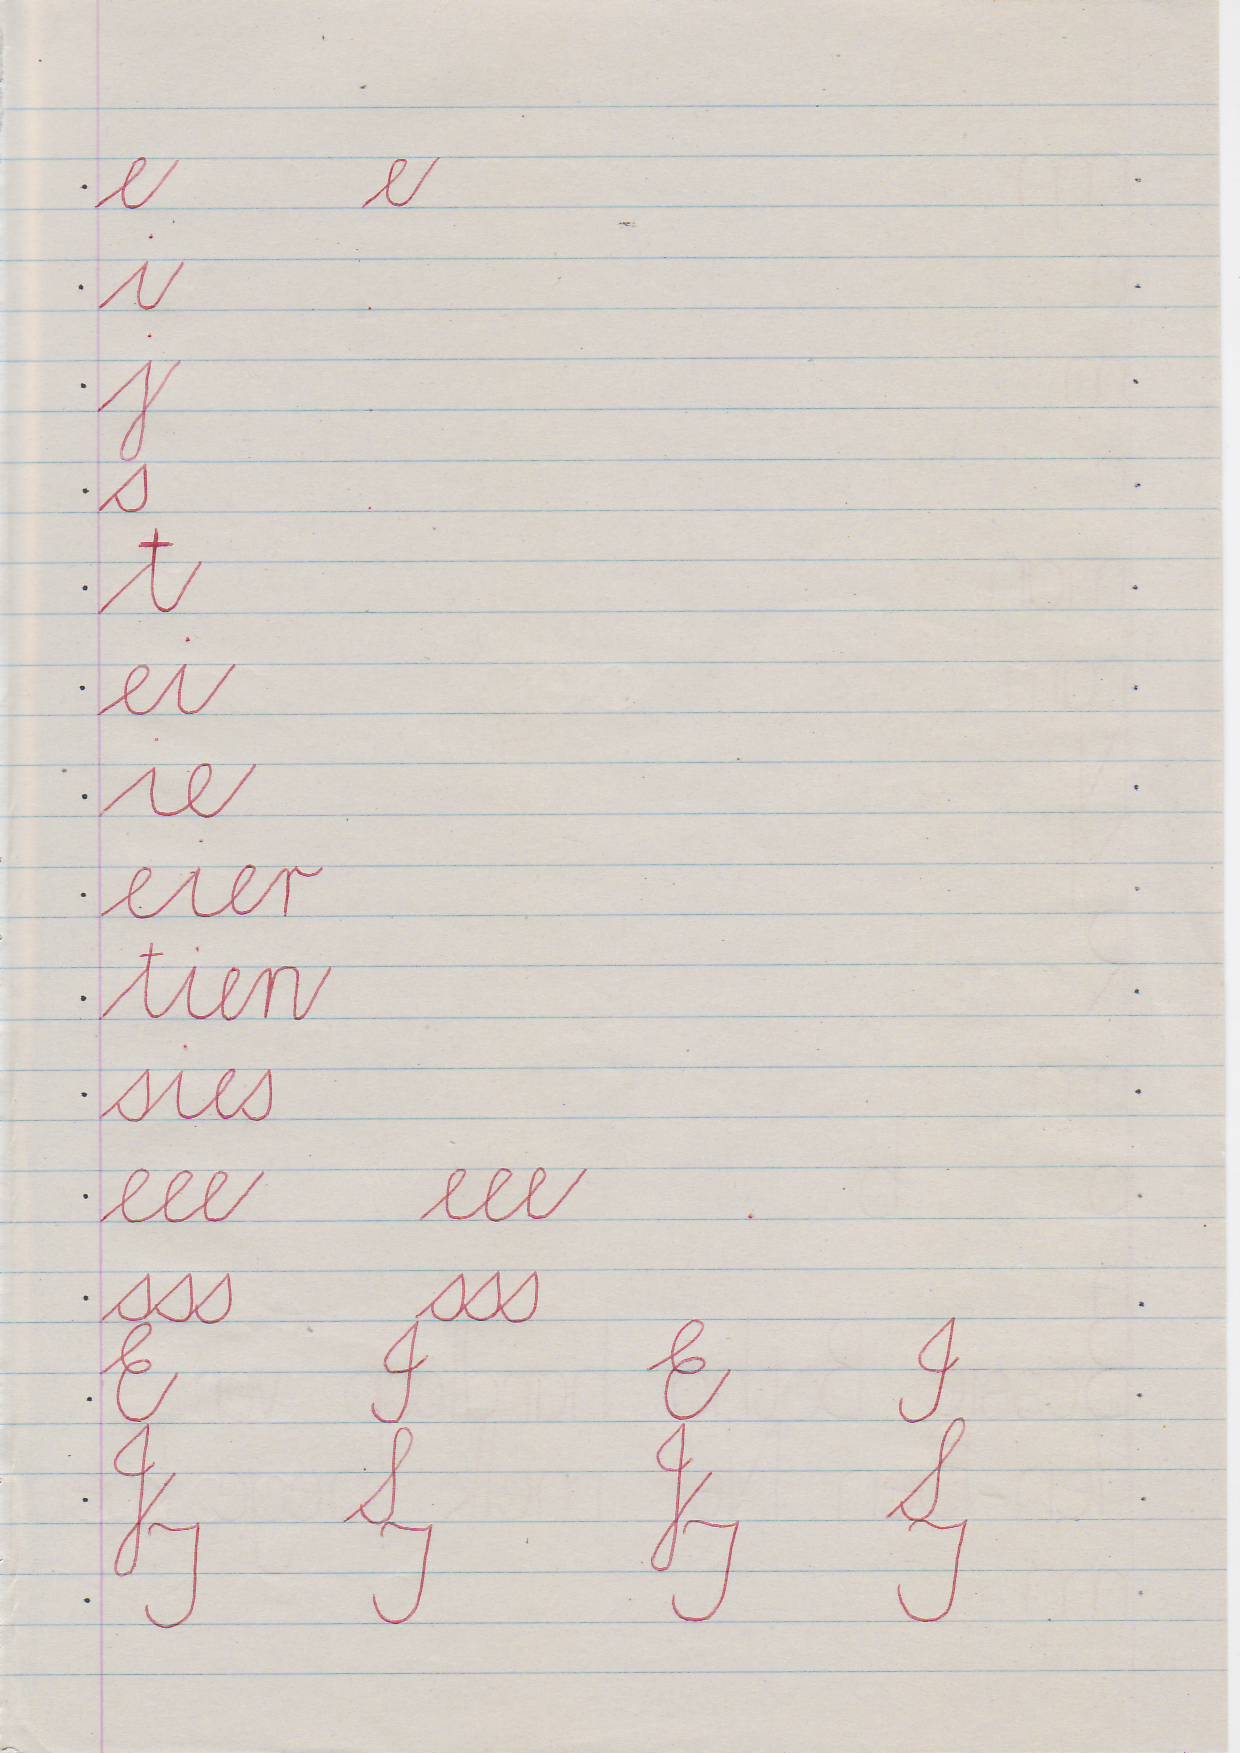 e e
i
j
s
t
ei
ie
eier
tien
sies
eee eee
sss sss
E I E I
J S J S